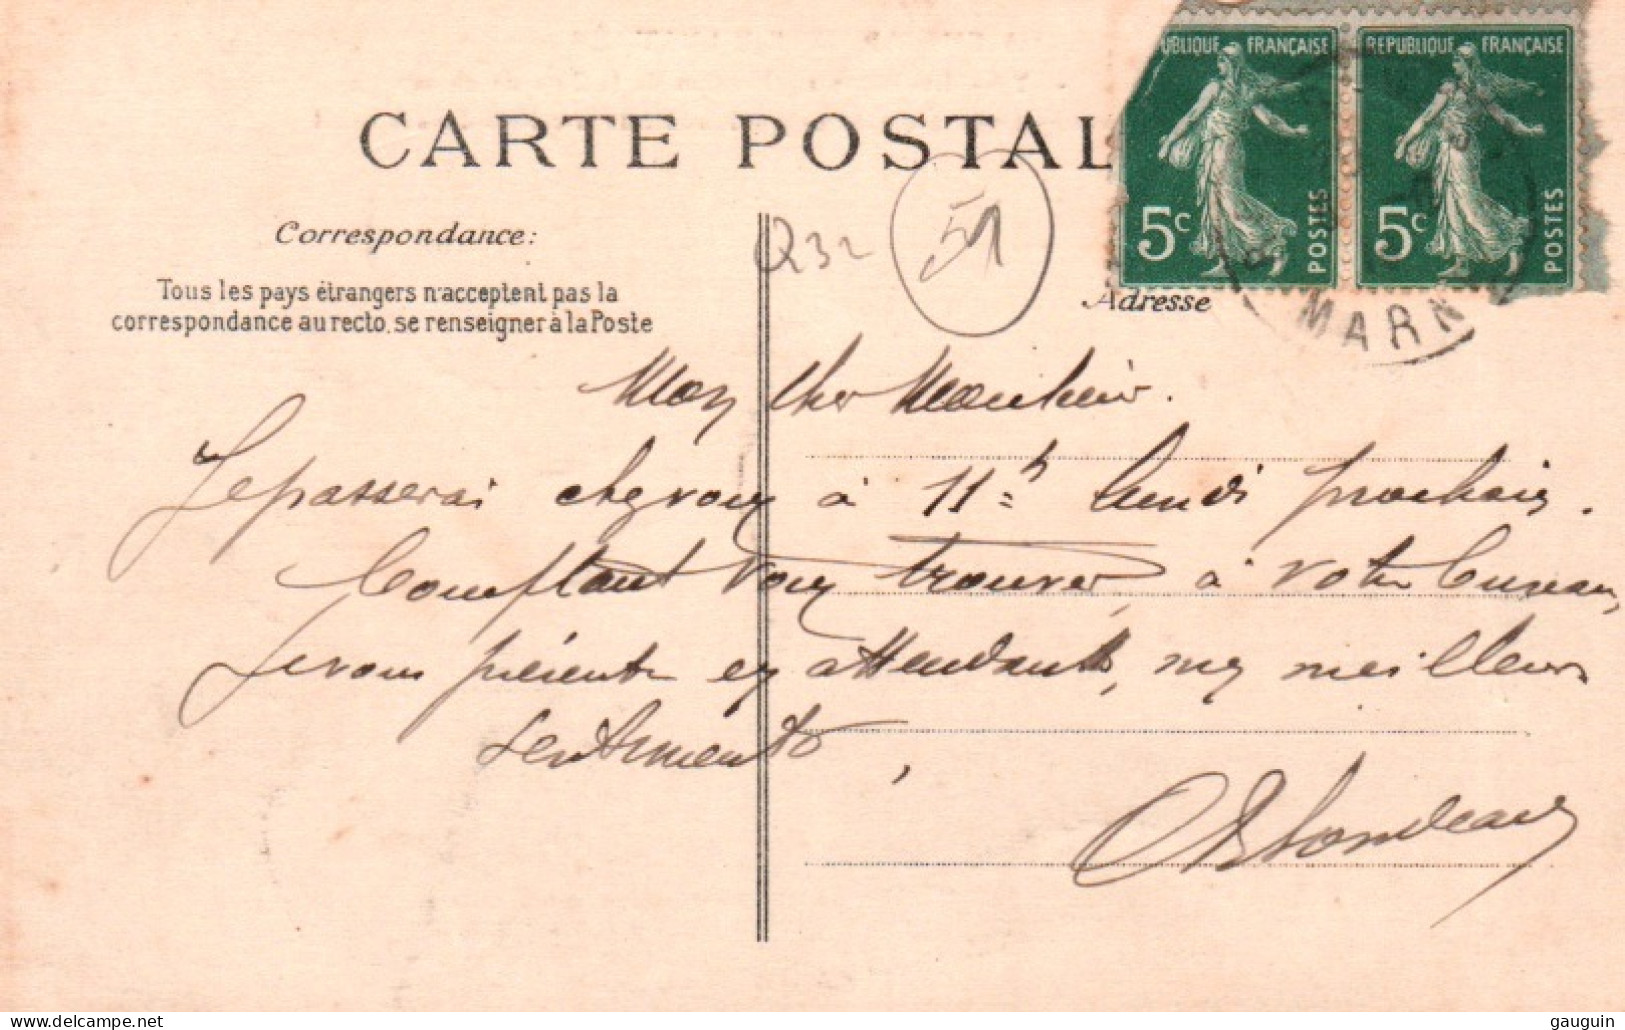 CARTE POSTAL
UBLIQUE FRANÇAISE
5c
POSTES
REPUBLIQUE FRANÇAISE
5c
POSTES
MARN
Correspondance:
Tous les pays étrangers n'acceptent pas la
correspondance au recto, se renseigner à la Poste
Adresse
Q32
51
Mon cher Monsieur.
Je passerai chez vous à 11h lundi prochain.
Comptant vous trouver à votre bureau,
Je vous présente en attendant, mes meilleurs
sentiments,
gauguin